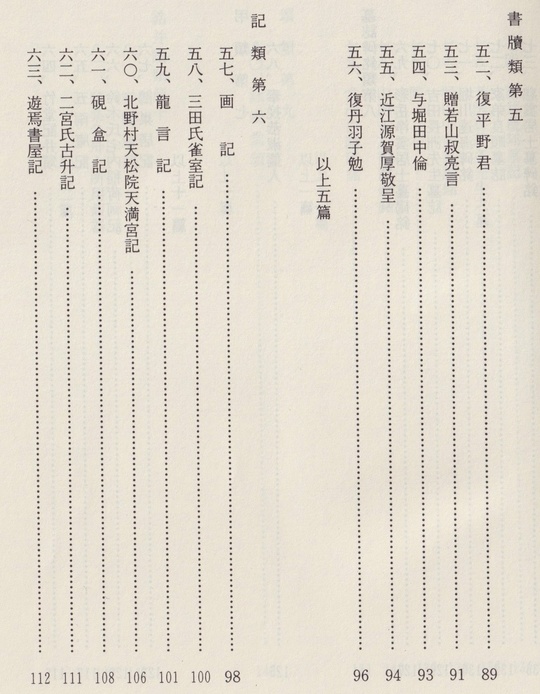 書牘類第五
五二、復平野君 89
五三、贈若山叔亮言 91
五四、与堀田中倫 93
五五、近江源賀厚敬呈 94
五六、復丹羽子勉 96
以上五篇
記類第六
五七、画記 98
五八、三田氏雀室記 100
五九、龍言記 101
六〇、北野村天松院天満宮記 106
六一、硯盒記 108
六二、二宮氏古升記 111
六三、遊焉書屋記 112